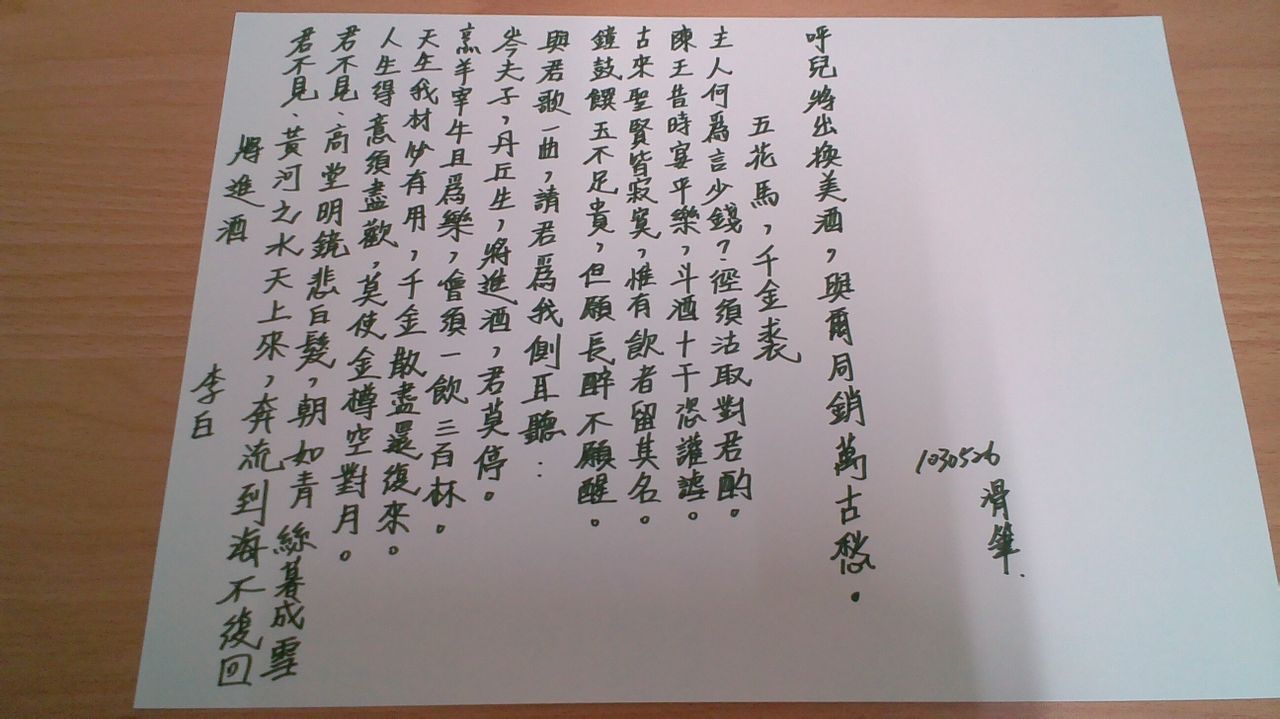 將進酒 李白
君不見、黃河之水天上來，奔流到海不復回
君不見、高堂明鏡悲白髮，朝如青絲暮成雪
人生得意須盡歡，莫使金樽空對月。
天生我材妙有用，千金散盡還復來。
烹羊宰牛且爲樂，會須一飲三百杯。
岑夫子，丹丘生，將進酒，君莫停。
與君歌一曲，請君爲我側耳聽：
鐘鼓饌玉不足貴，但願長醉不願醒。
古來聖賢皆寂寞，惟有飲者留其名。
陳王昔時宴平樂，斗酒十千恣讙謔。
主人何爲言少錢？徑須沽取對君酌。
五花馬，千金裘
呼兒將出換美酒，與爾同銷萬古愁。
1030526
滑筆.